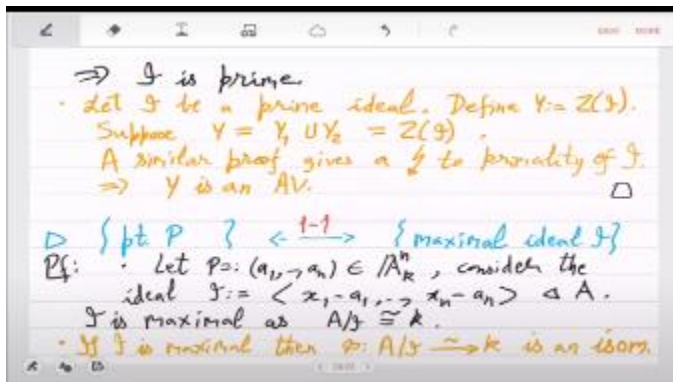 ⇒ I is prime.
· Let I be a prime ideal. Define Y := Z(I).
Suppose Y = Y₁ ∪ Y₂ = Z(I).
A similar proof gives a ↯ to primality of I.
⇒ Y is an AV. □
▷ {pt. P } ←1-1→ {maximal ideal I}
Pf: · Let P =: (a₁,..,aₙ) ∈ 𝔸ⁿₖ, consider the
ideal I := <x₁-a₁,..., xₙ-aₙ> ⊲ A.
I is maximal as A/I ≅ k.
· If I is maximal then φ: A/I ⥲ k is an isom.